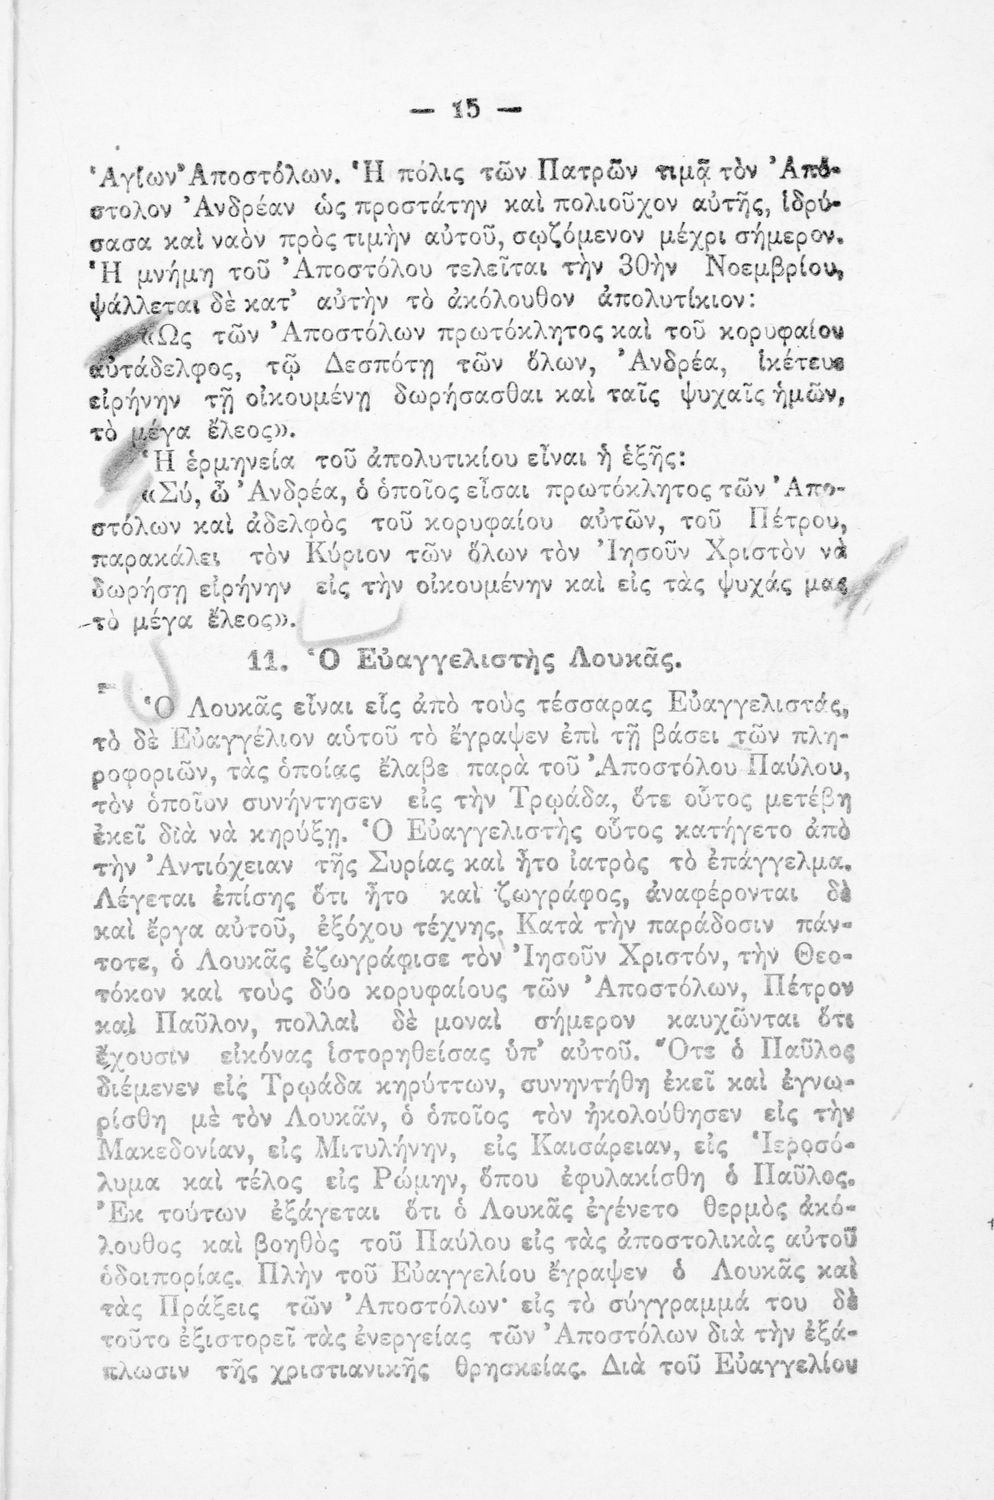 — 15 —
Ἁγίων Ἀποστόλων. Ἡ πόλις τῶν Πατρῶν τιμᾷ τὸν Ἀπό-
στολον Ἀνδρέαν ὡς προστάτην καὶ πολιοῦχον αὐτῆς, ἱδρύ-
σασα καὶ ναὸν πρὸς τιμὴν αὐτοῦ, σῳζόμενον μέχρι σήμερον.
Ἡ μνήμη τοῦ Ἀποστόλου τελεῖται τὴν 30ὴν Νοεμβρίου,
ψάλλεται δὲ κατ’ αὐτὴν τὸ ἀκόλουθον ἀπολυτίκιον:
«Ὡς τῶν Ἀποστόλων πρωτόκλητος καὶ τοῦ κορυφαίου
αὐτάδελφος, τῷ Δεσπότῃ τῶν ὅλων, Ἀνδρέα, ἱκέτευε
εἰρήνην τῇ οἰκουμένῃ δωρήσασθαι καὶ ταῖς ψυχαῖς ἡμῶν,
τὸ μέγα ἔλεος».
Ἡ ἑρμηνεία τοῦ ἀπολυτικίου εἶναι ἡ ἑξῆς:
«Σύ, ὦ Ἀνδρέα, ὁ ὁποῖος εἶσαι πρωτόκλητος τῶν Ἀπο-
στόλων καὶ ἀδελφὸς τοῦ κορυφαίου αὐτῶν, τοῦ Πέτρου,
παρακάλει τὸν Κύριον τῶν ὅλων τὸν Ἰησοῦν Χριστὸν νὰ
δωρήσῃ εἰρήνην εἰς τὴν οἰκουμένην καὶ εἰς τὰς ψυχάς μας
τὸ μέγα ἔλεος».
11. Ὁ Εὐαγγελιστὴς Λουκᾶς.
Ὁ Λουκᾶς εἶναι εἷς ἀπὸ τοὺς τέσσαρας Εὐαγγελιστάς,
τὸ δὲ Εὐαγγέλιον αὐτοῦ τὸ ἔγραψεν ἐπὶ τῇ βάσει τῶν πλη-
ροφοριῶν, τὰς ὁποίας ἔλαβε παρὰ τοῦ Ἀποστόλου Παύλου,
τὸν ὁποῖον συνήντησεν εἰς τὴν Τρῳάδα, ὅτε οὗτος μετέβη
ἐκεῖ διὰ νὰ κηρύξῃ. Ὁ Εὐαγγελιστὴς οὗτος κατήγετο ἀπὸ
τὴν Ἀντιόχειαν τῆς Συρίας καὶ ἦτο ἰατρὸς τὸ ἐπάγγελμα.
Λέγεται ἐπίσης ὅτι ἦτο καὶ ζωγράφος, ἀναφέρονται δὲ
καὶ ἔργα αὐτοῦ, ἐξόχου τέχνης. Κατὰ τὴν παράδοσιν πάν-
τοτε, ὁ Λουκᾶς ἐζωγράφισε τὸν Ἰησοῦν Χριστόν, τὴν Θεο-
τόκον καὶ τοὺς δύο κορυφαίους τῶν Ἀποστόλων, Πέτρον
καὶ Παῦλον, πολλαὶ δὲ μοναὶ σήμερον καυχῶνται ὅτι
ἔχουσιν εἰκόνας ἱστορηθείσας ὑπ’ αὐτοῦ. Ὅτε ὁ Παῦλος
διέμενεν εἰς Τρῳάδα κηρύττων, συνηντήθη ἐκεῖ καὶ ἐγνω-
ρίσθη μὲ τὸν Λουκᾶν, ὁ ὁποῖος τὸν ἠκολούθησεν εἰς τὴν
Μακεδονίαν, εἰς Μιτυλήνην, εἰς Καισάρειαν, εἰς Ἱεροσό-
λυμα καὶ τέλος εἰς Ρώμην, ὅπου ἐφυλακίσθη ὁ Παῦλος.
Ἐκ τούτων ἐξάγεται ὅτι ὁ Λουκᾶς ἐγένετο θερμὸς ἀκό-
λουθος καὶ βοηθὸς τοῦ Παύλου εἰς τὰς ἀποστολικὰς αὐτοῦ
ὁδοιπορίας. Πλὴν τοῦ Εὐαγγελίου ἔγραψεν ὁ Λουκᾶς καὶ
τὰς Πράξεις τῶν Ἀποστόλων· εἰς τὸ σύγγραμμά του δὲ
τοῦτο ἐξιστορεῖ τὰς ἐνεργείας τῶν Ἀποστόλων διὰ τὴν ἐξά-
πλωσιν τῆς χριστιανικῆς θρησκείας. Διὰ τοῦ Εὐαγγελίου